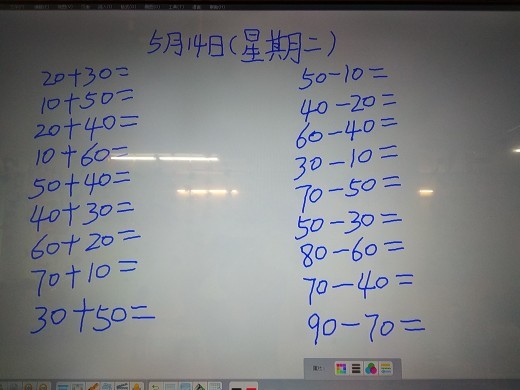 5月14日(星期二)
20+30=
10+50=
20+40=
10+60=
50+40=
40+30=
60+20=
70+10=
30+50=
50-10=
40-20=
60-40=
30-10=
70-50=
50-30=
80-60=
70-40=
90-70=